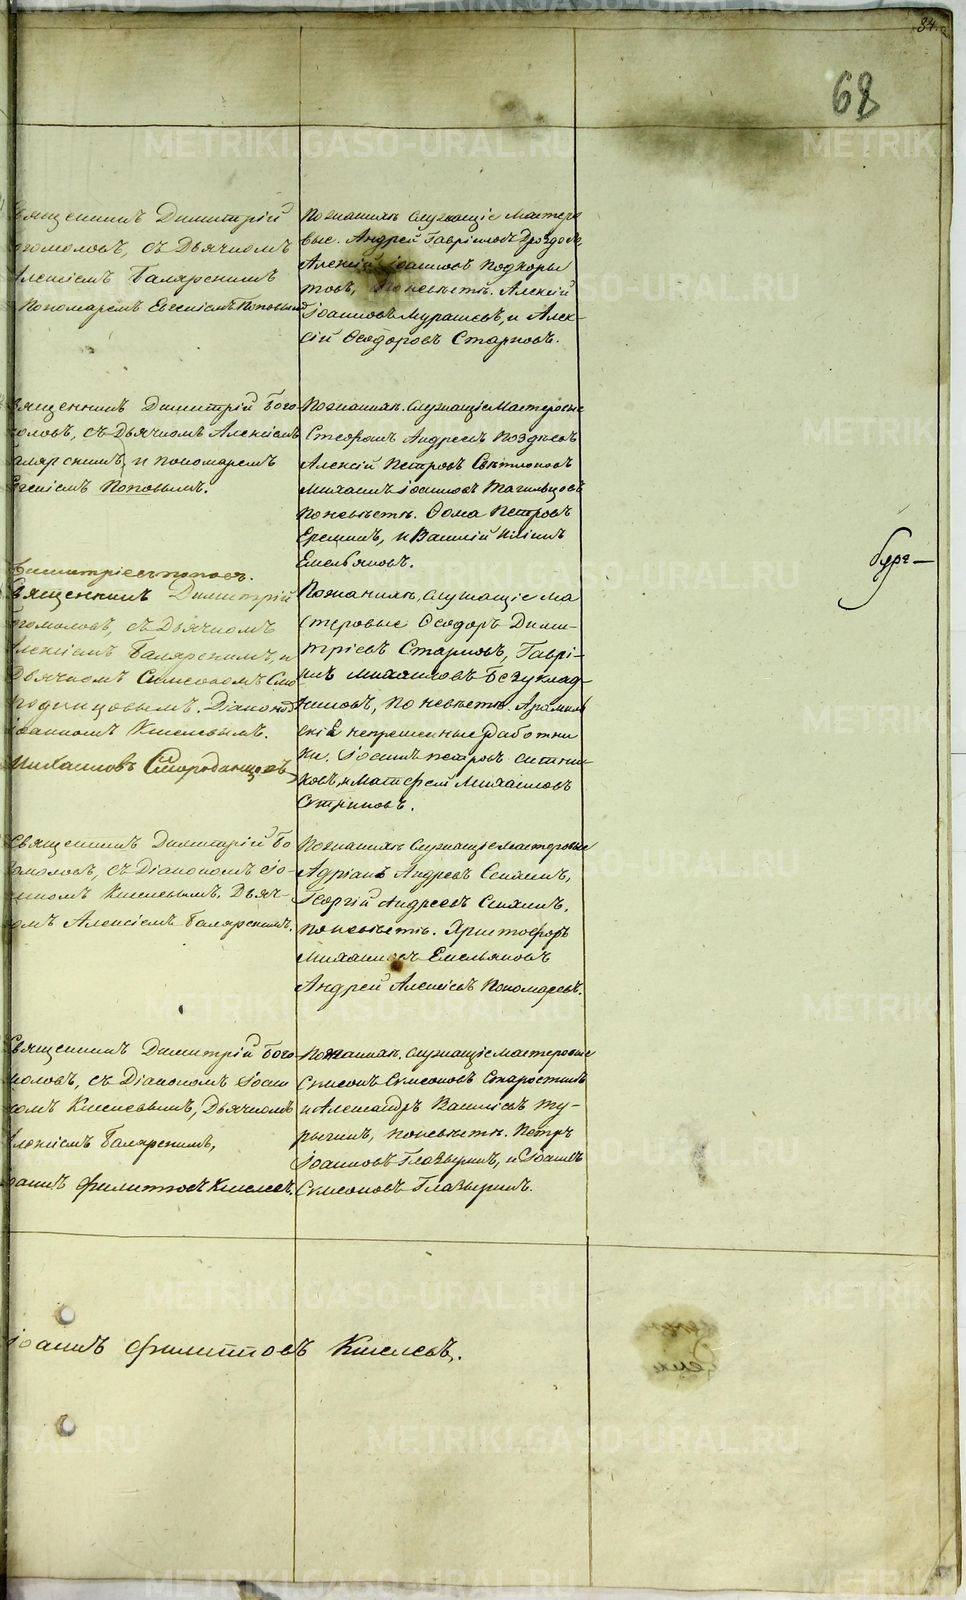 84.
68
Священникъ Димитрій
Богомоловъ, съ Дьячкомъ
Алексіемъ
Пономаремъ Евгеніемъ Поповымъ
По женихѣ служащіе мастеро
вые. Андрей Гавріиловъ Дроздовъ,
Алексій Іоанновъ Подкоры
товъ, По невѣстѣ. Алексій
Іоанновъ Мурашевъ, и Алек-
сій Ѳеодоровъ Старковъ.
Священникъ Димитрій Бого
моловъ, съ Дьячкомъ Алексіемъ
и пономаремъ
Евгеніемъ Поповымъ.
По женихѣ. Служащіе Мастеровые
Андреевъ Поздѣевъ
Алексій Петровъ Свѣтлаковъ
Михаилъ Іоанновъ Тагильцовъ
По невѣстѣ. Ѳома Петровъ
Ереминъ, и Василій
Емельяновъ.
Священникъ Димитрій
Богомоловъ, съ Дьячкомъ
Алексіемъ и
Дьячкомъ Симеономъ Смо
родинцовымъ. Діакономъ
Іоанномъ Киселевымъ.
Михаиловъ Смородинцовъ
По женихѣ, служащіе Ма
стеровые Ѳеодоръ Дими-
тріевъ Старковъ, Гаврі-
илъ Михаиловъ Безуклад-
никовъ, По невѣстѣ. Арамиль
скіе непремѣнные работни
ки. Іоаннъ Петровъ Ситни-
ковъ, и Матѳей Михаиловъ
Священникъ Димитрій Бо
гомоловъ, съ Діакономъ Іо-
анномъ Киселевымъ. Дьяч-
комъ Алексіемъ
По женихѣ служащіе мастеровые
Адріанъ Андреевъ
Георгій Андреевъ
По невѣстѣ. Христофоръ
Михаиловъ Емельяновъ
Андрей Алексѣевъ Пономаревъ.
Священникъ Димитрій Бого
моловъ, съ Діакономъ Іоан
номъ Киселевымъ, Дьячкомъ
Алексіемъ
Іоаннъ Филипповъ Киселевъ.
По женихѣ. служащіе мастеровые
Симеонъ Симеоновъ Старостинъ
и Александръ Василіевъ Ту-
рыгинъ, по невѣстѣ. Петръ
Іоанновъ Глазыринъ, и Іоаннъ
Симеоновъ Глазыринъ.
Іоаннъ Филипповъ Киселевъ.
METRIKI.GASO-URAL.RU